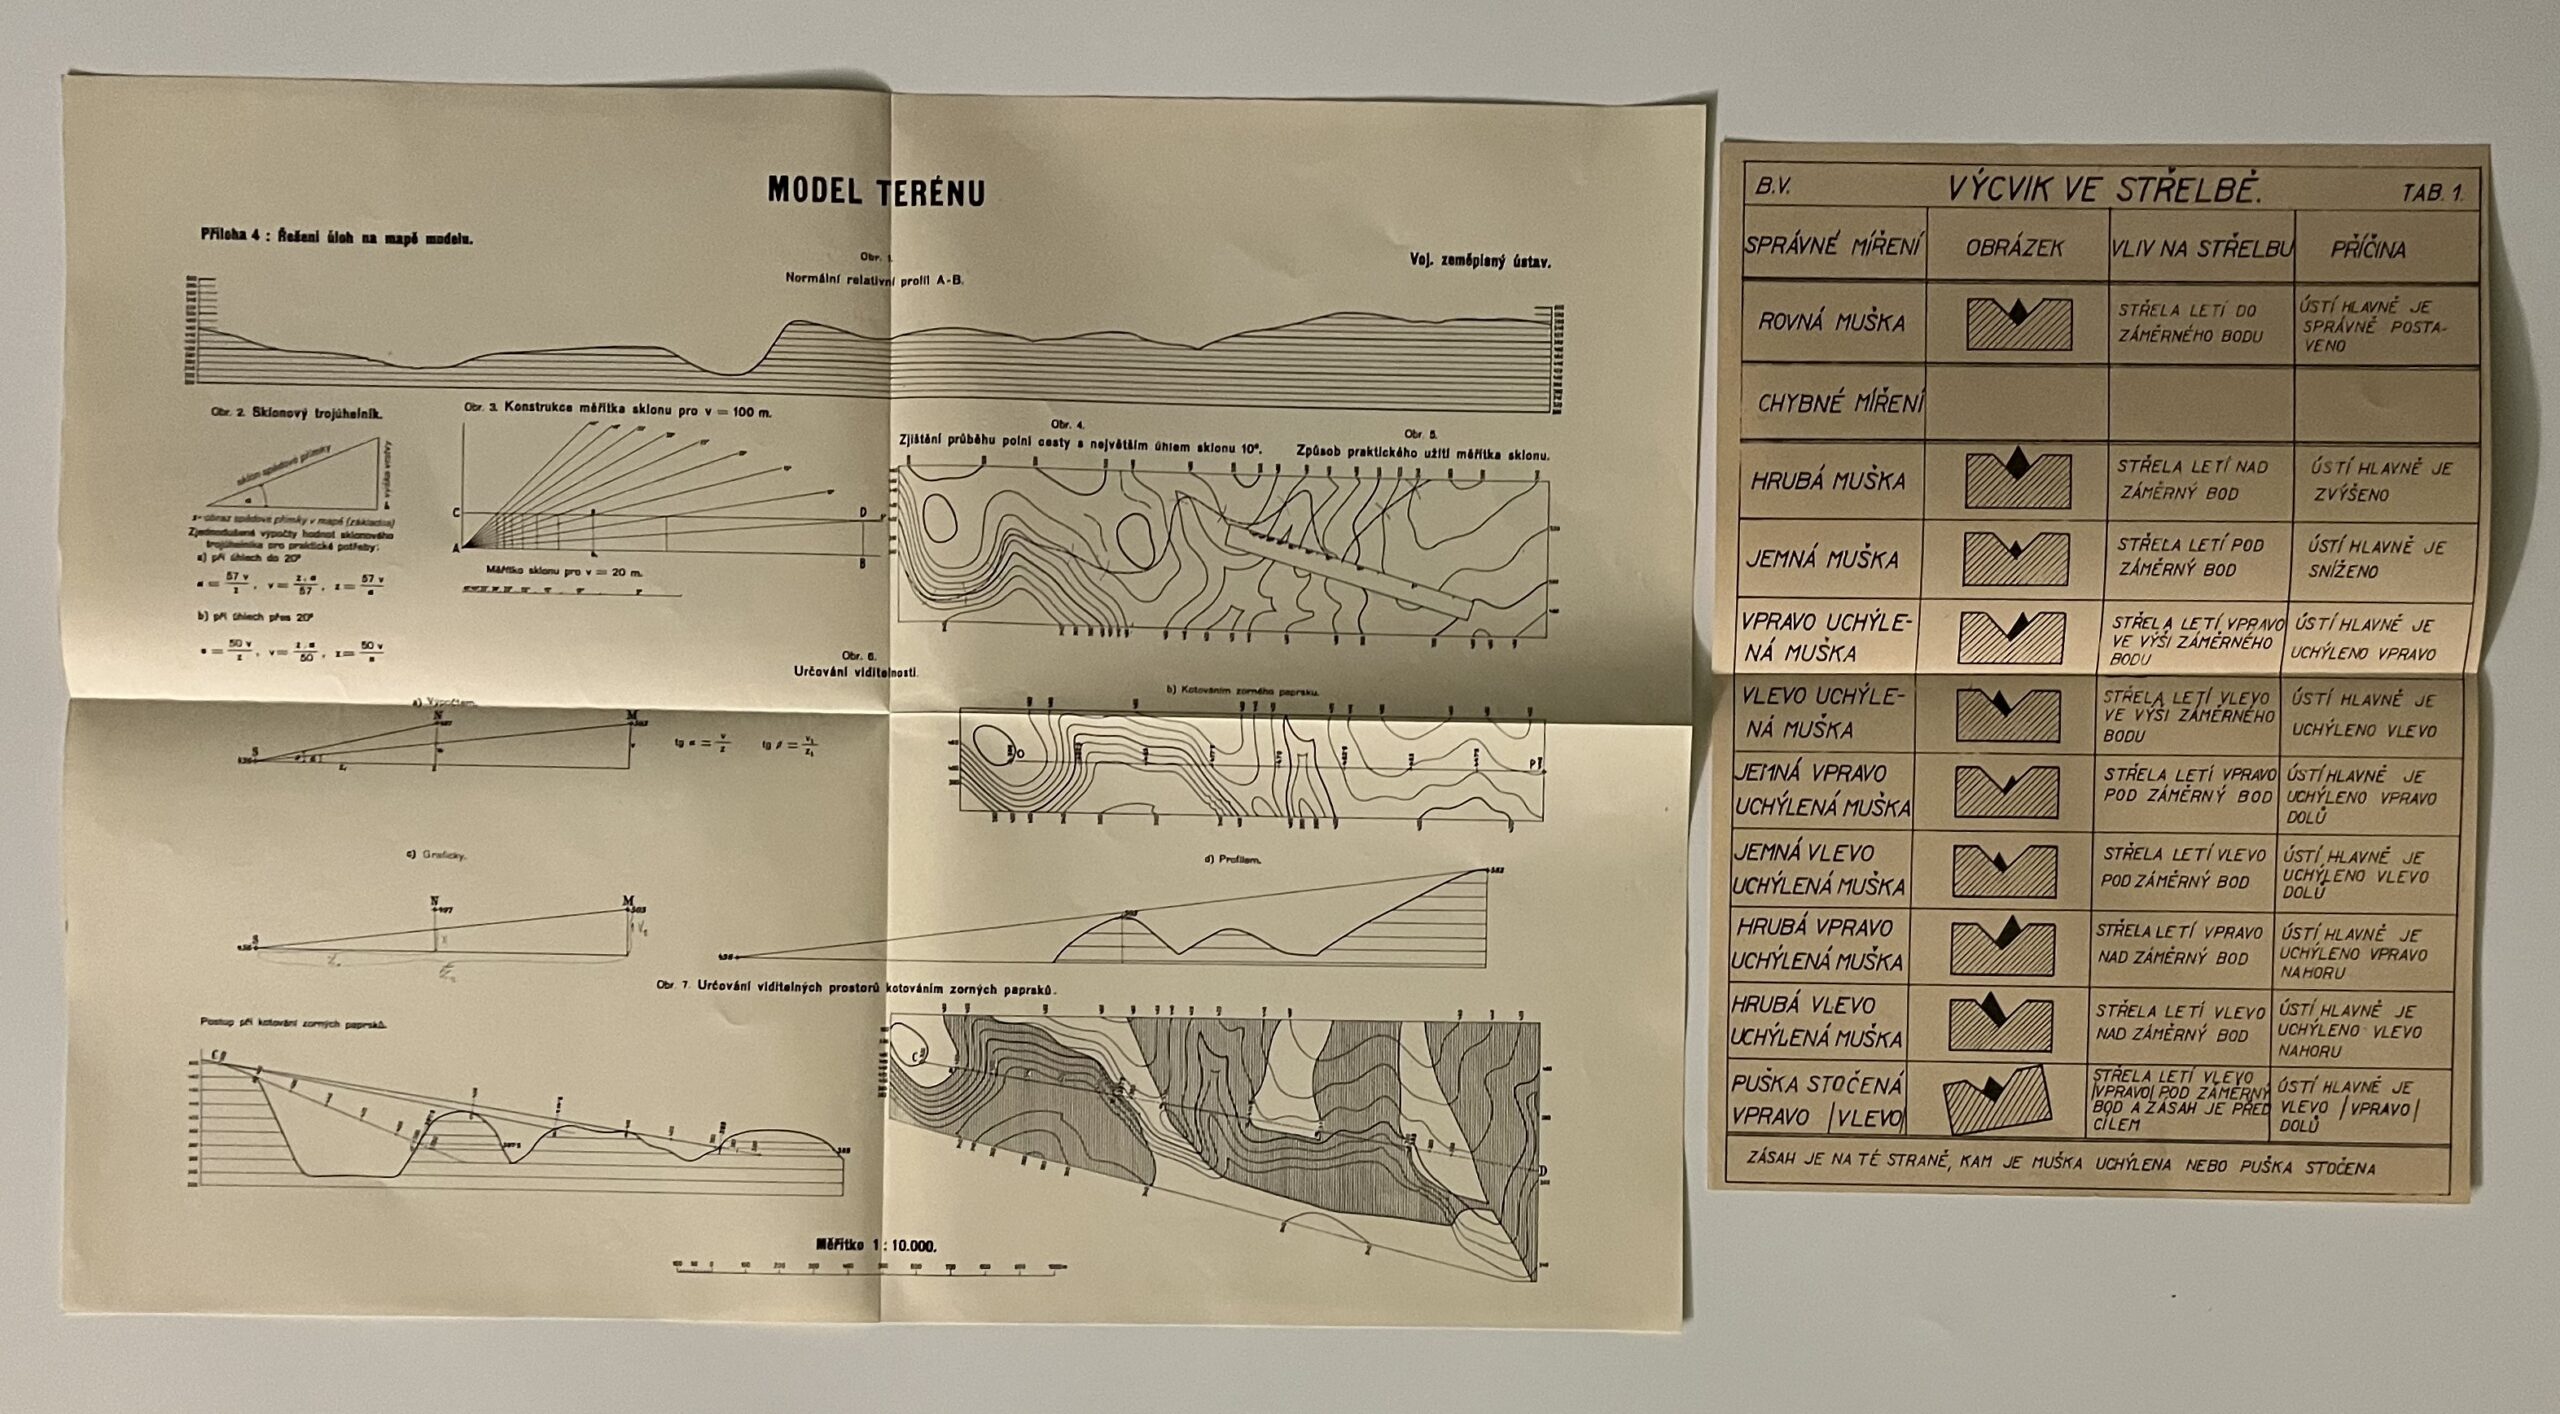 MODEL TERÉNU
Příloha 4 : Řešení úloh na mapě modelu.
Voj. zeměpisný ústav.
Obr. 1.
Normální relativní profil A-B.
Obr. 2. Sklonový trojúhelník.
sklon spádové přímky
s=obraz spádové přímky v mapě (základna)
Zjednodušené výpočty hodnot sklonového
trojúhelníka pro praktické potřeby:
a) při úhlech do 20°
α = 57 v / z , v = z . α / 57 , z = 57 v / α
b) při úhlech přes 20°
α = 50 v / z , v = z . α / 50 , z = 50 v / α
Obr. 3. Konstrukce měřítka sklonu pro v = 100 m.
C
D
A
B
Měřítko sklonu pro v = 20 m.
Obr. 4.
Zjištění průběhu polní cesty s největším úhlem sklonu 10°.
Obr. 5.
Způsob praktického užití měřítka sklonu.
Obr. 6.
Určování viditelnosti.
a) Výpočtem.
S
N
M
tg α = v / z tg β = v₁ / z₁
b) Kotováním zorného paprsku.
O
P
c) Graficky.
S
N
M
d) Profilem.
Obr. 7. Určování viditelných prostorů kotováním zorných paprsků.
Postup při kotování zorných paprsků.
C
C
D
Měřítko 1 : 10.000.
100 50 0 100 200 300 400 500 600 700 800 900 1000m
B.V. VÝCVIK VE STŘELBĚ. TAB. 1.
SPRÁVNÉ MÍŘENÍ OBRÁZEK VLIV NA STŘELBU PŘÍČINA
ROVNÁ MUŠKA
STŘELA LETÍ DO
ZÁMĚRNÉHO BODU
ÚSTÍ HLAVNĚ JE
SPRÁVNĚ POSTA-
VENO
CHYBNÉ MÍŘENÍ
HRUBÁ MUŠKA
STŘELA LETÍ NAD
ZÁMĚRNÝ BOD
ÚSTÍ HLAVNĚ JE
ZVÝŠENO
JEMNÁ MUŠKA
STŘELA LETÍ POD
ZÁMĚRNÝ BOD
ÚSTÍ HLAVNĚ JE
SNÍŽENO
VPRAVO UCHÝLE-
NÁ MUŠKA
STŘELA LETÍ VPRAVO
VE VÝŠI ZÁMĚRNÉHO
BODU
ÚSTÍ HLAVNĚ JE
UCHÝLENO VPRAVO
VLEVO UCHÝLE-
NÁ MUŠKA
STŘELA LETÍ VLEVO
VE VÝŠI ZÁMĚRNÉHO
BODU
ÚSTÍ HLAVNĚ JE
UCHÝLENO VLEVO
JEMNÁ VPRAVO
UCHÝLENÁ MUŠKA
STŘELA LETÍ VPRAVO
POD ZÁMĚRNÝ BOD
ÚSTÍ HLAVNĚ JE
UCHÝLENO VPRAVO
DOLŮ
JEMNÁ VLEVO
UCHÝLENÁ MUŠKA
STŘELA LETÍ VLEVO
POD ZÁMĚRNÝ BOD
ÚSTÍ HLAVNĚ JE
UCHÝLENO VLEVO
DOLŮ
HRUBÁ VPRAVO
UCHÝLENÁ MUŠKA
STŘELA LETÍ VPRAVO
NAD ZÁMĚRNÝ BOD
ÚSTÍ HLAVNĚ JE
UCHÝLENO VPRAVO
NAHORU
HRUBÁ VLEVO
UCHÝLENÁ MUŠKA
STŘELA LETÍ VLEVO
NAD ZÁMĚRNÝ BOD
ÚSTÍ HLAVNĚ JE
UCHÝLENO VLEVO
NAHORU
PUŠKA STOČENÁ
VPRAVO /VLEVO/
STŘELA LETÍ VLEVO
/VPRAVO/ POD ZÁMĚRNÝ
BOD A ZÁSAH JE PŘED
CÍLEM
ÚSTÍ HLAVNĚ JE
VLEVO /VPRAVO/
DOLŮ
ZÁSAH JE NA TÉ STRANĚ, KAM JE MUŠKA UCHÝLENA NEBO PUŠKA STOČENA